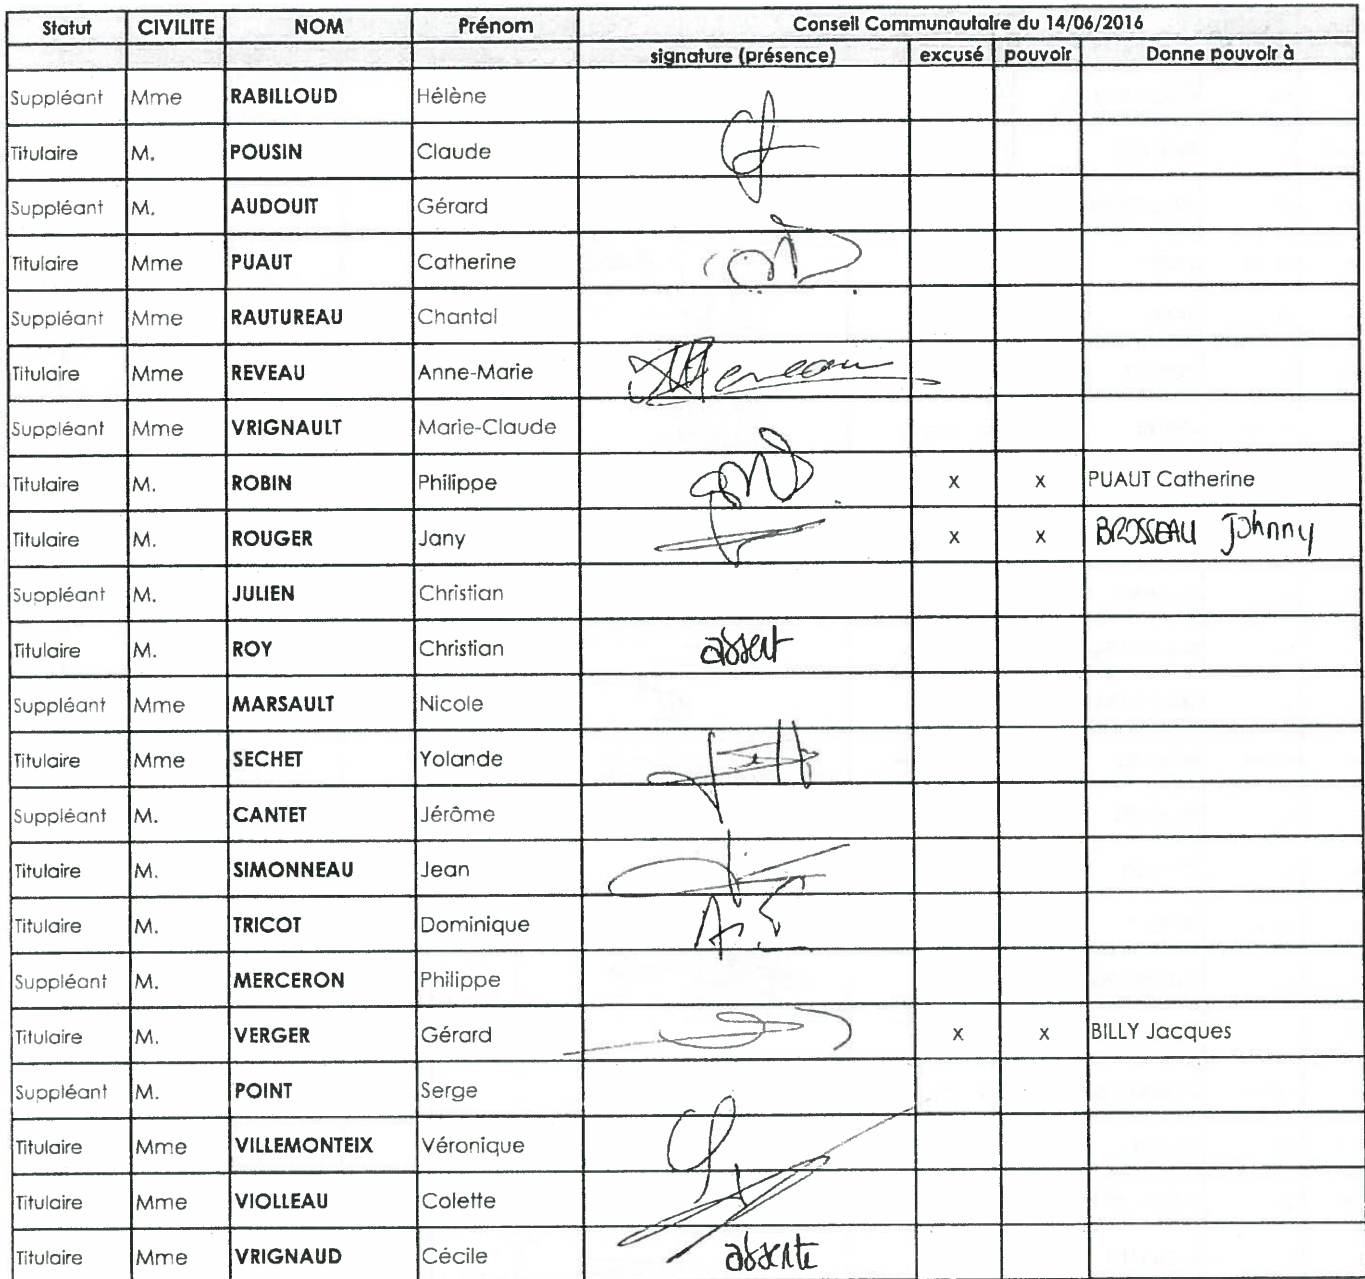 Statut CIVILITE NOM Prénom Conseil Communautaire du 14/06/2016
signature (présence) excusé pouvoir Donne pouvoir à
Suppléant Mme RABILLOUD Hélène
Titulaire M. POUSIN Claude
Suppléant M. AUDOUIT Gérard
Titulaire Mme PUAUT Catherine
Suppléant Mme RAUTUREAU Chantal
Titulaire Mme REVEAU Anne-Marie
Suppléant Mme VRIGNAULT Marie-Claude
Titulaire M. ROBIN Philippe x x PUAUT Catherine
Titulaire M. ROUGER Jany x x BROSSEAU Johnny
Suppléant M. JULIEN Christian
Titulaire M. ROY Christian absent
Suppléant Mme MARSAULT Nicole
Titulaire Mme SECHET Yolande
Suppléant M. CANTET Jérôme
Titulaire M. SIMONNEAU Jean
Titulaire M. TRICOT Dominique
Suppléant M. MERCERON Philippe
Titulaire M. VERGER Gérard x x BILLY Jacques
Suppléant M. POINT Serge
Titulaire Mme VILLEMONTEIX Véronique
Titulaire Mme VIOLLEAU Colette
Titulaire Mme VRIGNAUD Cécile absente